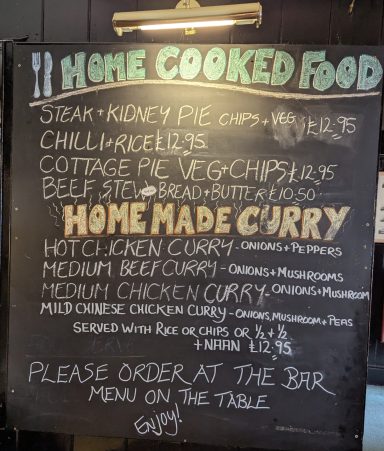 HOME COOKED FOOD
STEAK + KIDNEY PIE CHIPS + VEG £12-95
CHILLI + RICE £12-95
COTTAGE PIE VEG + CHIPS £12-95
BEEF STEW BREAD + BUTTER £10-50
HOME MADE CURRY
HOT CHICKEN CURRY - ONIONS + PEPPERS
MEDIUM BEEF CURRY - ONIONS + MUSHROOMS
MEDIUM CHICKEN CURRY - ONIONS + MUSHROOM
MILD CHINESE CHICKEN CURRY - ONIONS, MUSHROOM + PEAS
SERVED WITH RICE OR CHIPS OR ½ + ½
+ NAAN £12.95
PLEASE ORDER AT THE BAR
MENU ON THE TABLE
ENJOY!